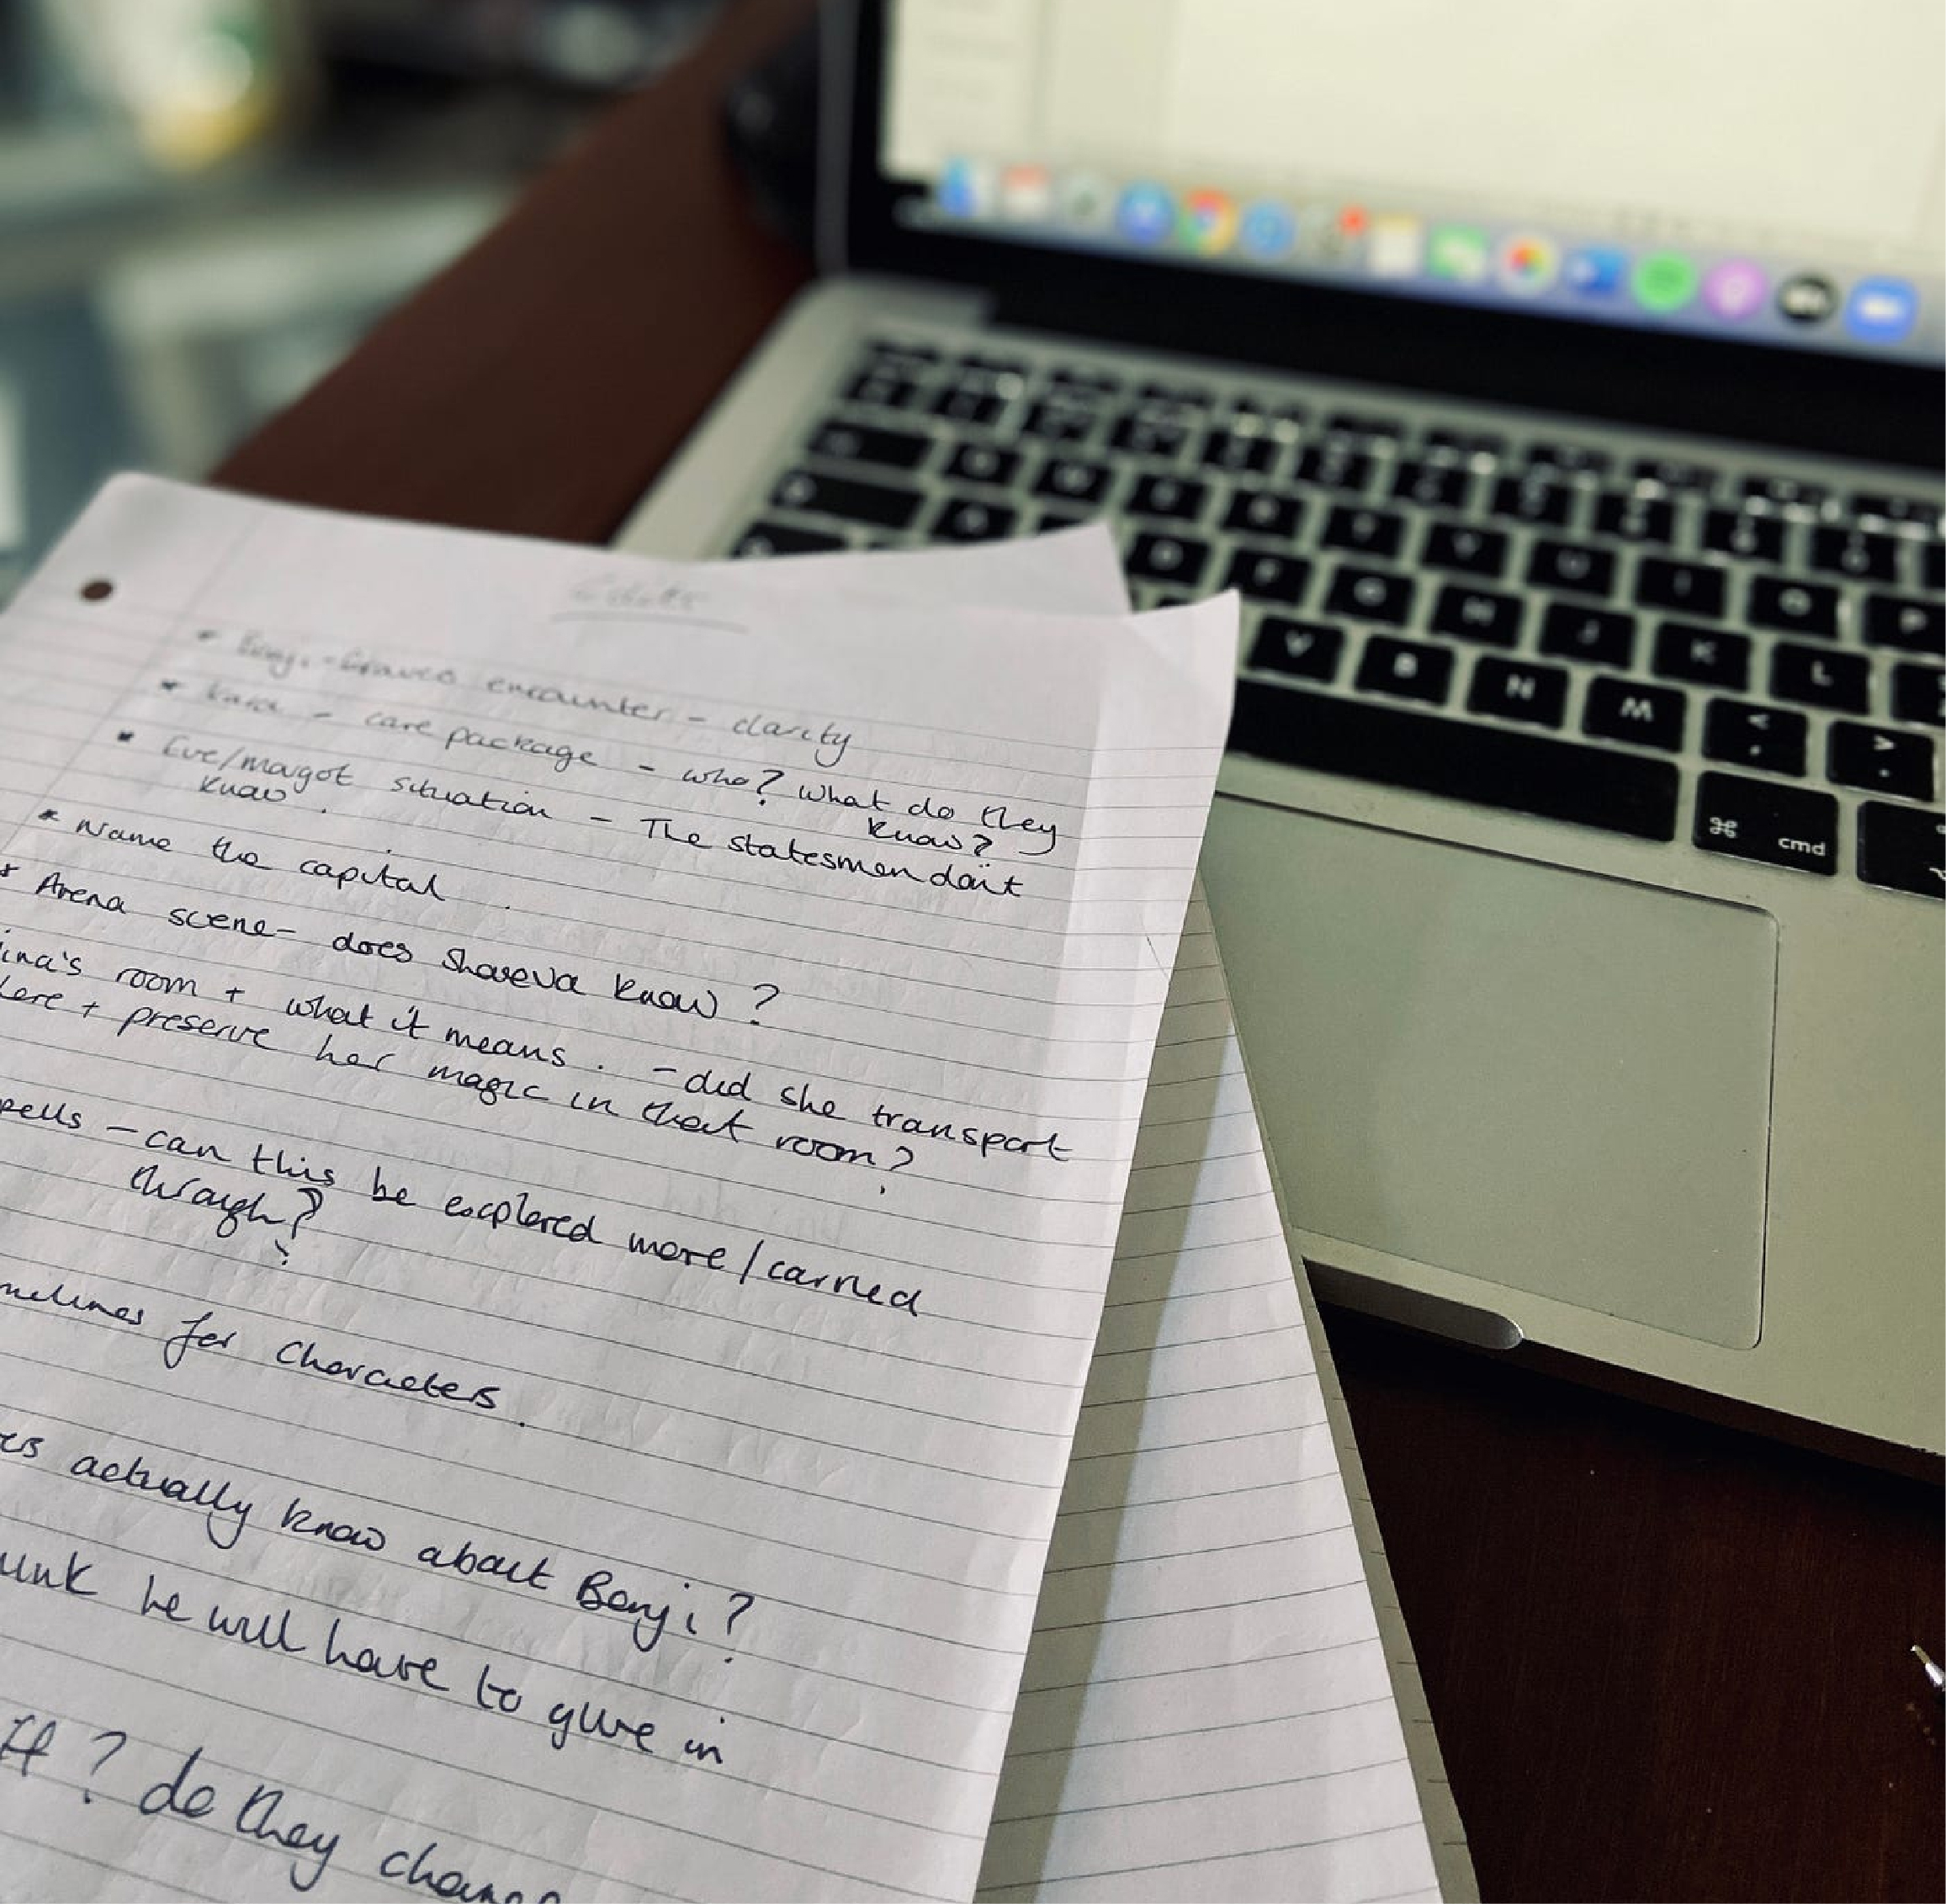 Edits
* Benji - Graves encounter - clarity
* Kara - care package - who? What do they
know?
* Eve/Margot situation - The statesmen don't
know.
* Name the capital.
* Arena scene - does Shareva know?
ina's room + what it means. - did she transport
here + preserve her magic in that room?
pells - can this be explored more/carried
through?
melines for Characters.
es actually know about Benji?
unk he will have to give in
ff? do they change
Q W E R T Y U I O P
A D F G H J K L
V B N M < , > .
⌘ cmd